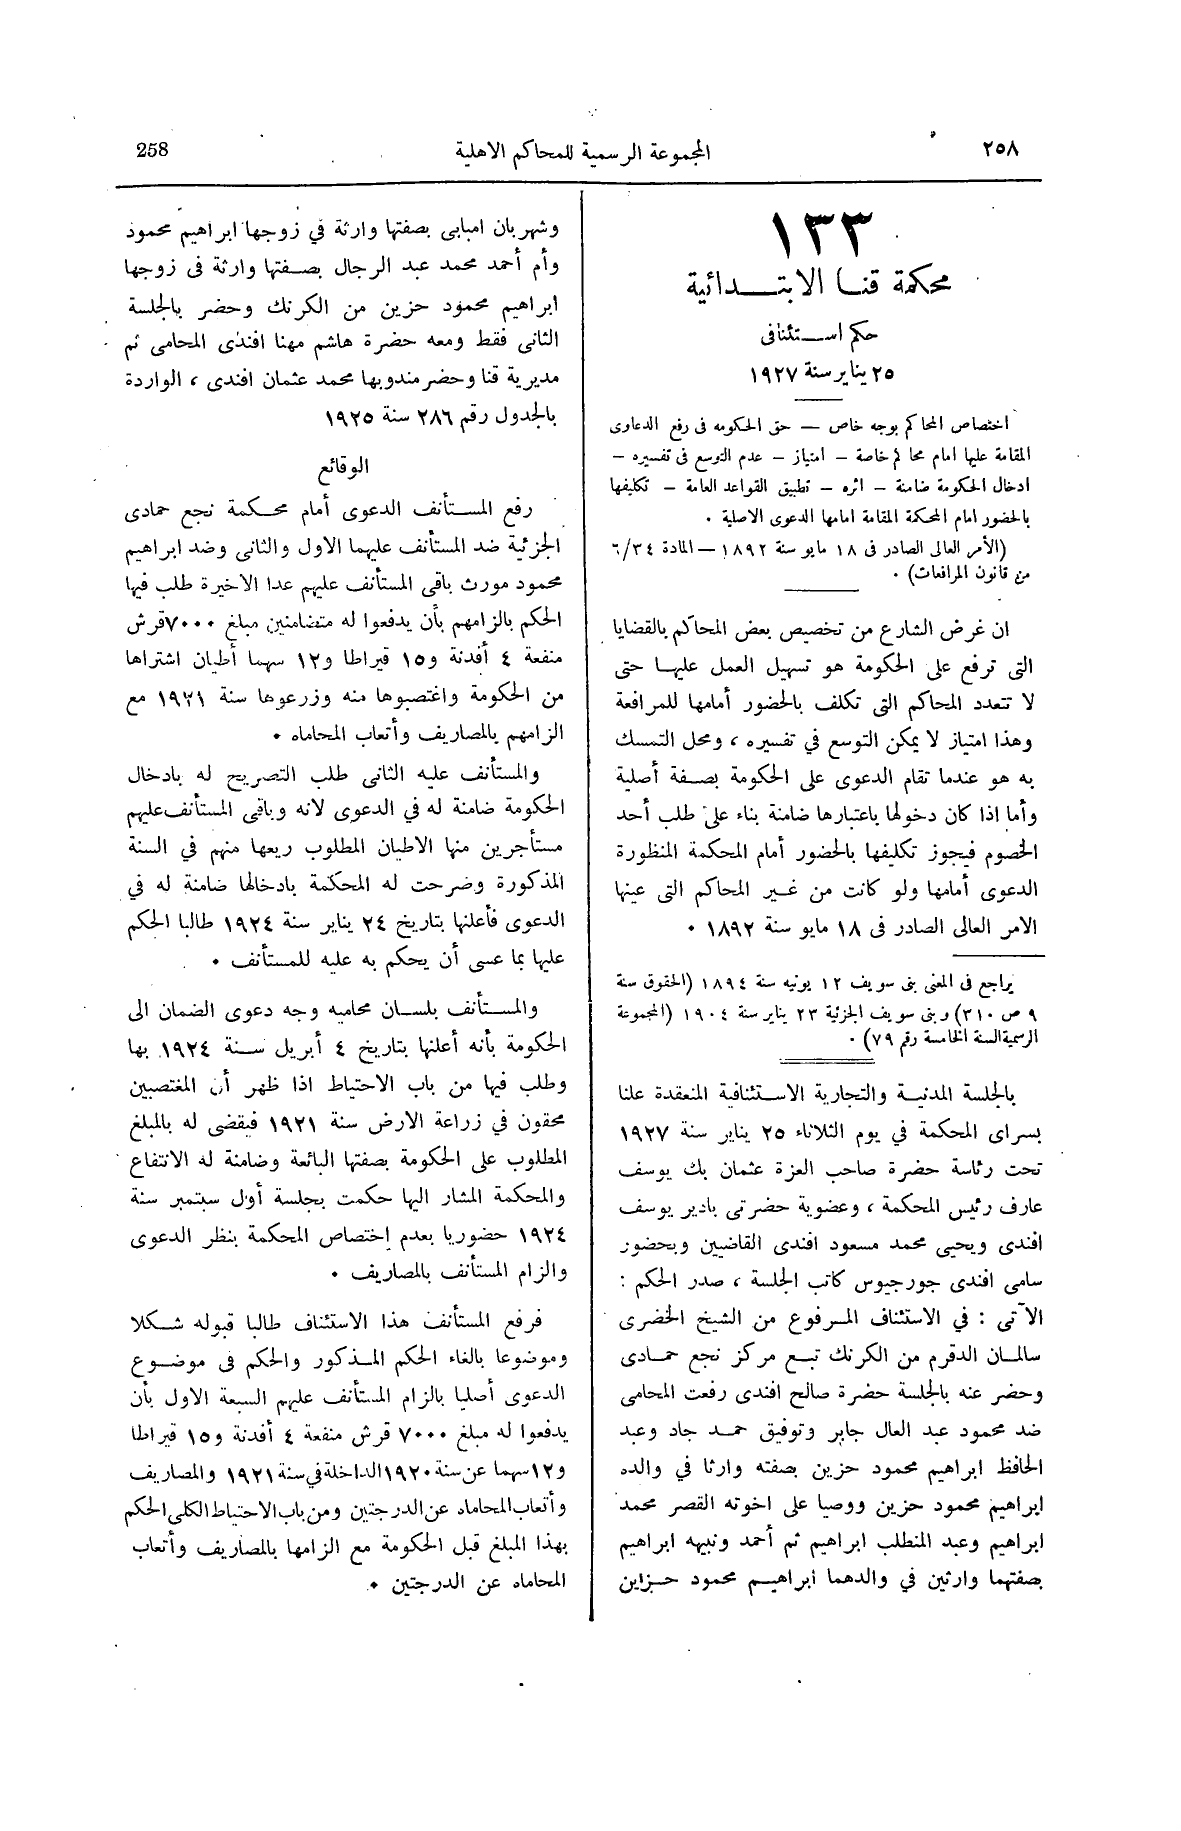 ٢٥٨
المجموعة الرسمية للمحاكم الاهلية
258
١٣٣
محكمة قنا الابتدائية
حكم استئنافى
٢٥ يناير سنة ١٩٢٧
اختصاص المحاكم بوجه خاص — حق الحكومه فى رفع الدعاوى
المقامة عليها امام محاكم خاصة — امتياز — عدم التوسع فى تفسيره —
ادخال الحكومة ضامنة — اثره — تطبيق القواعد العامة — تكليفها
بالحضور امام المحكمة المقامة امامها الدعوى الاصلية .
(الأمر العالى الصادر فى ١٨ مايو سنة ١٨٩٢ — المادة ٦/٣٤
من قانون المرافعات) .
ان غرض الشارع من تخصيص بعض المحاكم بالقضايا
التى ترفع على الحكومة هو تسهيل العمل عليها حتى
لا تتعدد المحاكم التى تكلف بالحضور أمامها للمرافعة
وهذا امتياز لا يمكن التوسع في تفسيره ، ومحل التمسك
به هو عندما تقام الدعوى على الحكومة بصفة أصلية
وأما اذا كان دخولها باعتبارها ضامنة بناء على طلب أحد
الخصوم فيجوز تكليفها بالحضور أمام المحكمة المنظورة
الدعوى أمامها ولو كانت من غير المحاكم التى عينها
الامر العالى الصادر فى ١٨ مايو سنة ١٨٩٢ .
يراجع فى المعنى بنى سويف ١٢ يونيه سنة ١٨٩٤ (الحقوق سنة
٩ ص ٣١٠) وبنى سويف الجزئية ٢٣ يناير سنة ١٩٠٤ (المجموعة
الرسمية السنة الخامسة رقم ٧٩) .
بالجلسة المدنية والتجارية الاستئنافية المنعقدة علنا
بسراى المحكمة في يوم الثلاثاء ٢٥ يناير سنة ١٩٢٧
تحت رئاسة حضرة صاحب العزة عثمان بك يوسف
عارف رئيس المحكمة ، وعضوية حضرتى بادير يوسف
افندى ويحيى محمد مسعود افندى القاضيين وبحضور
سامى افندى جورجيوس كاتب الجلسة ، صدر الحكم :
الآتى : في الاستئناف المرفوع من الشيخ الخضرى
سالمان الدقرم من الكرنك تبع مركز نجع حمادى
وحضر عنه بالجلسة حضرة صالح افندى رفعت المحامى
ضد محمود عبد العال جابر وتوفيق حمد جاد وعبد
الحافظ ابراهيم محمود حزين بصفته وارثا في والده
ابراهيم محمود حزين ووصيا على اخوته القصر محمد
ابراهيم وعبد المتطلب ابراهيم ثم أحمد ونبيهه ابراهيم
بصفتهما وارثين في والدهما ابراهيم محمود حزاين
وشهربان امبابى بصفتها وارثة في زوجها ابراهيم محمود
وأم أحمد محمد عبد الرجال بصفتها وارثة فى زوجها
ابراهيم محمود حزين من الكرنك وحضر بالجلسة
الثانى فقط ومعه حضرة هاشم مهنا افندى المحامى ثم
مديرية قنا وحضر مندوبها محمد عثمان افندى ، الواردة
بالجدول رقم ٢٨٦ سنة ١٩٢٥
الوقائع
رفع المستأنف الدعوى أمام محكمة نجع حمادى
الجزئية ضد المستأنف عليهما الاول والثانى وضد ابراهيم
محمود مورث باقى المستأنف عليهم عدا الاخيرة طلب فيها
الحكم بالزامهم بأن يدفعوا له متضامنين مبلغ ٧٠٠٠ قرش
منفعة ٤ أفدنة و١٥ قيراطا و١٢ سهما أطيان اشتراها
من الحكومة واغتصبوها منه وزرعوها سنة ١٩٢١ مع
الزامهم بالمصاريف وأتعاب المحاماه .
والمستأنف عليه الثانى طلب التصريح له بادخال
الحكومة ضامنة له في الدعوى لانه وباقى المستأنف عليهم
مستأجرين منها الاطيان المطلوب ريعها منهم في السنة
المذكورة وضرحت له المحكمة بادخالها ضامنة له في
الدعوى فأعلنها بتاريخ ٢٤ يناير سنة ١٩٢٤ طالبا الحكم
عليها بما عسى أن يحكم به عليه للمستأنف .
والمستأنف بلسان محاميه وجه دعوى الضمان الى
الحكومة بأنه أعلنها بتاريخ ٤ أبريل سنة ١٩٢٤ بها
وطلب فيها من باب الاحتياط اذا ظهر أن المغتصبين
محقون في زراعة الارض سنة ١٩٢١ فيقضى له بالمبلغ
المطلوب على الحكومة بصفتها البائعة وضامنة له الانتفاع
والمحكمة المشار اليها حكمت بجلسة أول سبتمبر سنة
١٩٢٤ حضوريا بعدم إختصاص المحكمة بنظر الدعوى
والزام المستأنف بالمصاريف .
فرفع المستأنف هذا الاستئناف طالبا قبوله شكلا
وموضوعا بالغاء الحكم المذكور والحكم فى موضوع
الدعوى أصليا بالزام المستأنف عليهم السبعة الاول بأن
يدفعوا له مبلغ ٧٠٠٠ قرش منفعة ٤ أفدنة و١٥ قيراطا
و١٢ سهما عن سنة ١٩٢٠ الداخلة في سنة ١٩٢١ والمصاريف
وأتعاب المحاماه عن الدرجتين ومن باب الاحتياط الكلى الحكم
بهذا المبلغ قبل الحكومة مع الزامها بالمصاريف وأتعاب
المحاماه عن الدرجتين .